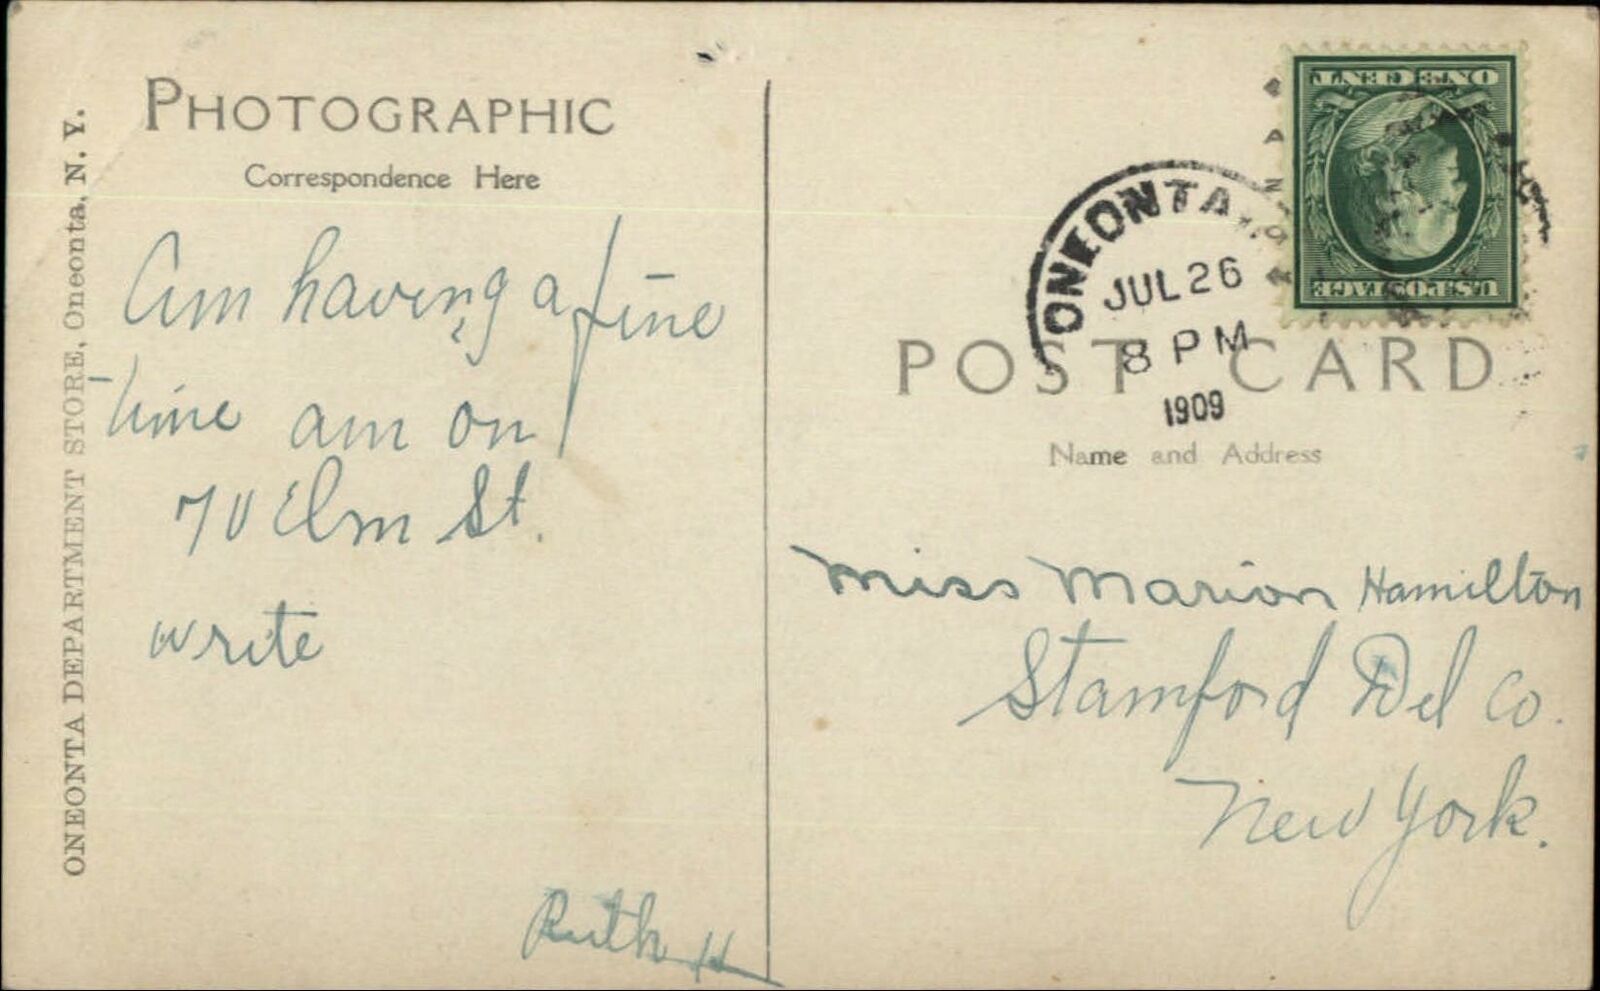 PHOTOGRAPHIC
Correspondence Here
ONEONTA DEPARTMENT STORE, Oneonta, N. Y.
Am having a fine
time am on
70 Elm St.
write
Ruth H
ONE CENT
U.S. POSTAGE
ONEONTA
JUL 26
8 PM
1909
POST CARD
Name and Address
Miss Marion Hamilton
Stamford Del Co.
New York.